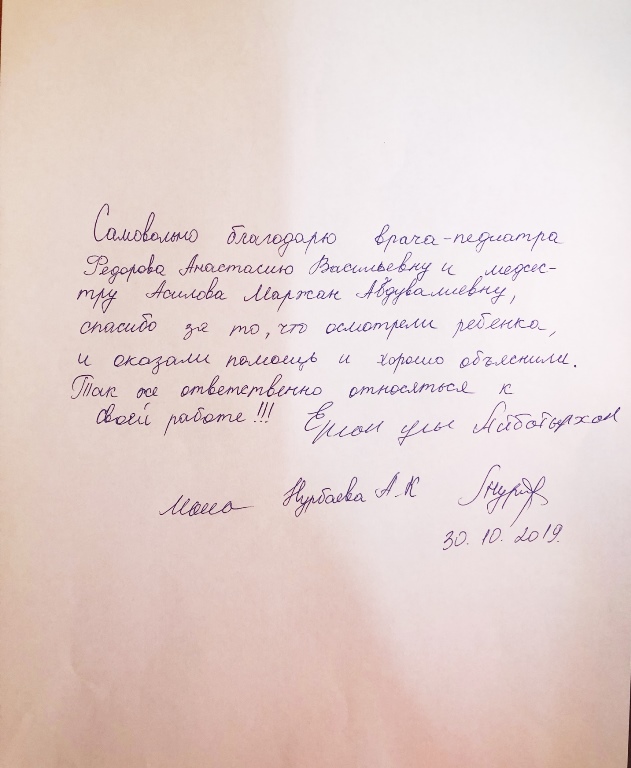 Самовольно благодарю врача-педиатра
Федорова Анастасию Васильевну и медсес-
тру Асилова Маржан Абдувалиевну,
спасибо за то, что осмотрели ребенка,
и оказали помощь и хорошо объяснили.
Так же ответственно относяться к
своей работе!!! Ерлан улы Айботырхан
мама Нурбаева А.К
30.10.2019.